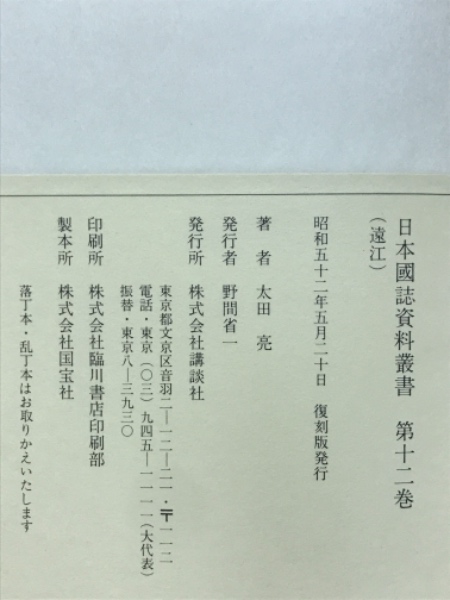 日本國誌資料叢書　第十二巻
（遠江）
昭和五十二年五月二十日　復刻版発行
著　者　太田　亮
発行者　野間省一
発行所　株式会社講談社
東京都文京区音羽二―一二―二一・〒一一二
電話・東京（〇三）九四五―一一一一（大代表）
振替・東京八―三九三〇
印刷所　株式会社臨川書店印刷部
製本所　株式会社国宝社
落丁本・乱丁本はお取りかえいたします